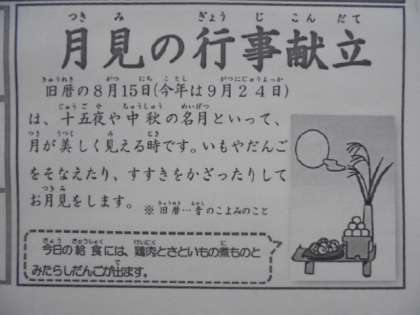 月見の行事献立
旧暦の8月15日(今年は9月24日)
は、十五夜や中秋の名月といって、
月が美しく見える時です。いもやだんご
をそなえたり、すすきをかざったりして
お月見をします。 ※旧暦…昔のこよみのこと
今日の給食には、鶏肉とさといもの煮ものと
みたらしだんごが出ます。